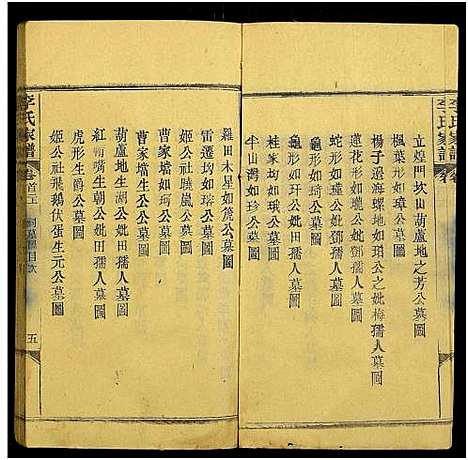 李氏家譜
立煌門坎山葫蘆地之芳公墓圖
楓葉形如璋公墓圖
楊子過海螺地如珀公之妣梅孺人墓圖
蓮花形如瓏公妣鄧孺人墓圖
蛇形如璠公妣鄧孺人墓圖
龜形如琦公墓圖
龜形如玗公墓圖
桂家塆如琼公墓圖
半山灣如珍公墓圖
羅田木星如篪公墓圖
雷還均如瑞公墓圖
姬公社曉嵐公墓圖
曹家塆如琦公墓圖
曹家壋生和公墓圖
葫蘆地生朝公妣田孺人墓圖
紅蛸形大聰公妣田孺人墓圖
虎形生爵公墓圖
姬公社飛鵝伏蛋生元公墓圖
李氏家譜
卷首三
祠墓圖目次
五